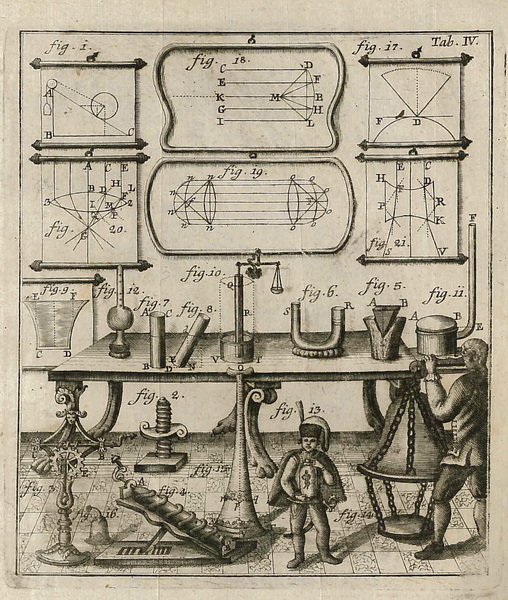 Tab. IV.
fig. 1.
A
B
C
fig. 18.
C
D
E
F
K
M
B
G
H
I
L
fig. 17.
F
D
A
C
E
B
D
H
F
L
3
I
M
2
P
G
fig. 20.
fig. 19.
n
n
n
n
n
n
o
o
o
o
E
C
H
F
D
P
R
K
S
V
fig. 21.
fig. 9.
E
F
C
D
fig. 12.
fig. 7
A
C
B
D
fig. 8.
E
N
fig. 10.
Q
R
V
O
fig. 6.
S
R
fig. 5.
A
B
fig. 11.
A
B
F
E
fig. 2.
fig. 3.
fig. 4.
A
fig. 13.
fig. 14.
fig. 15.
fig. 16.